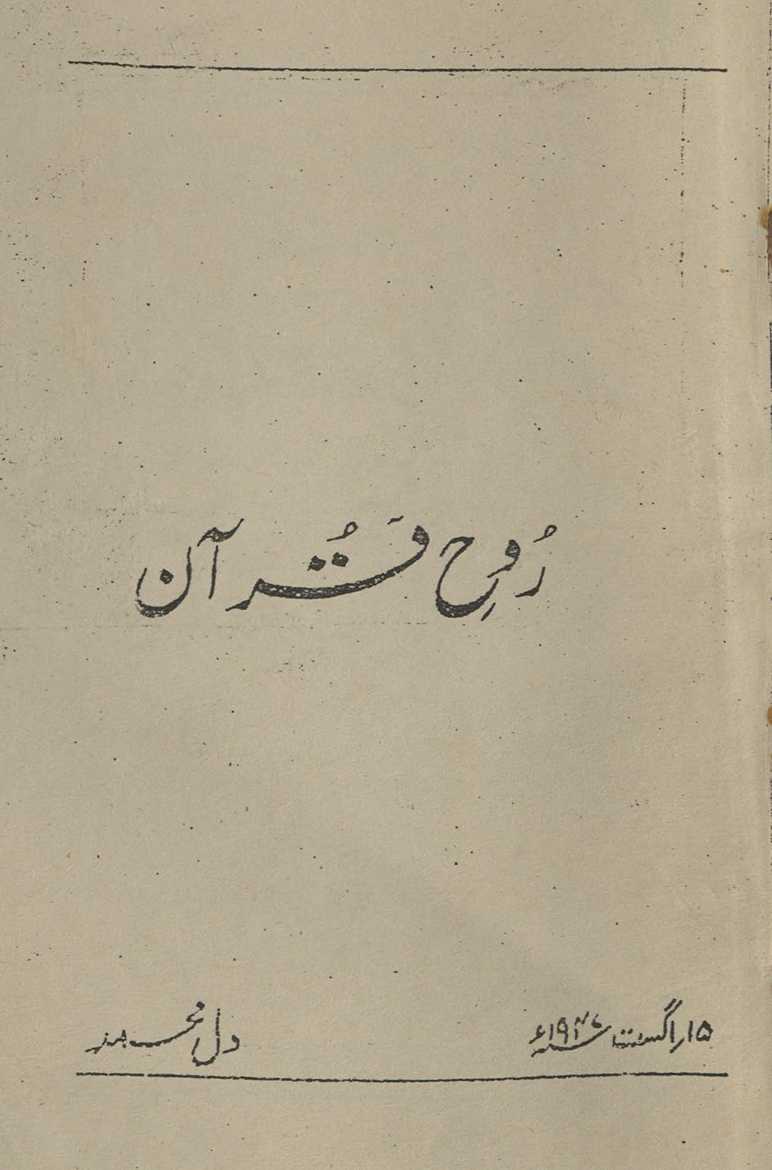 رُوحِ قُرآن
۱۵ر اگست ۱۹۴۷ء
دل محمد